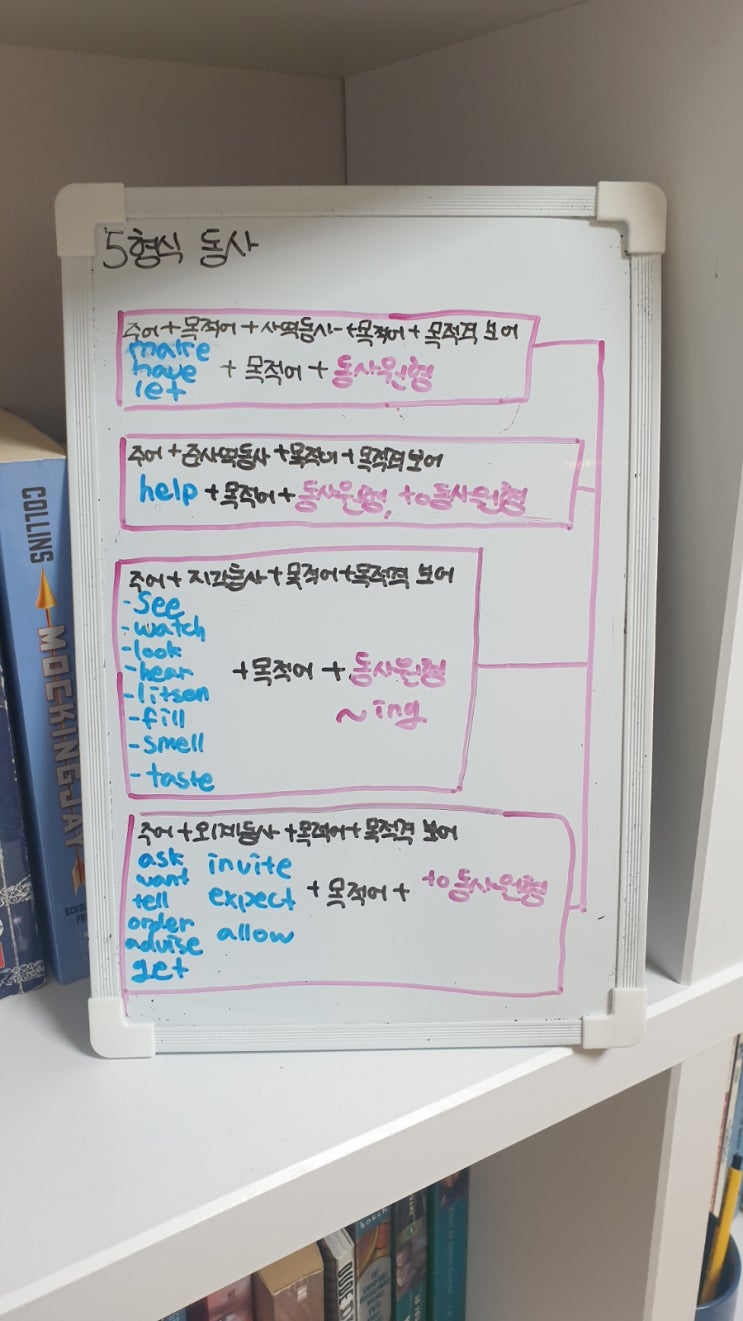 5형식 동사
주어+목적어+사역동사+목적어+목적격 보어
make
have + 목적어 + 동사원형
let
주어+준사역동사+목적어+목적격보어
help +목적어+ 동사원형, to동사원형
주어+지각동사+목적어+목적격 보어
-see
-watch
-look
-hear +목적어 + 동사원형
-litsen
~ing
-fill
-smell
-taste
주어+외계동사+목적어+목적격 보어
ask invite
want
tell expect +목적어+ to동사원형
order
advise allow
get
COLLINS
MOCKINGJAY